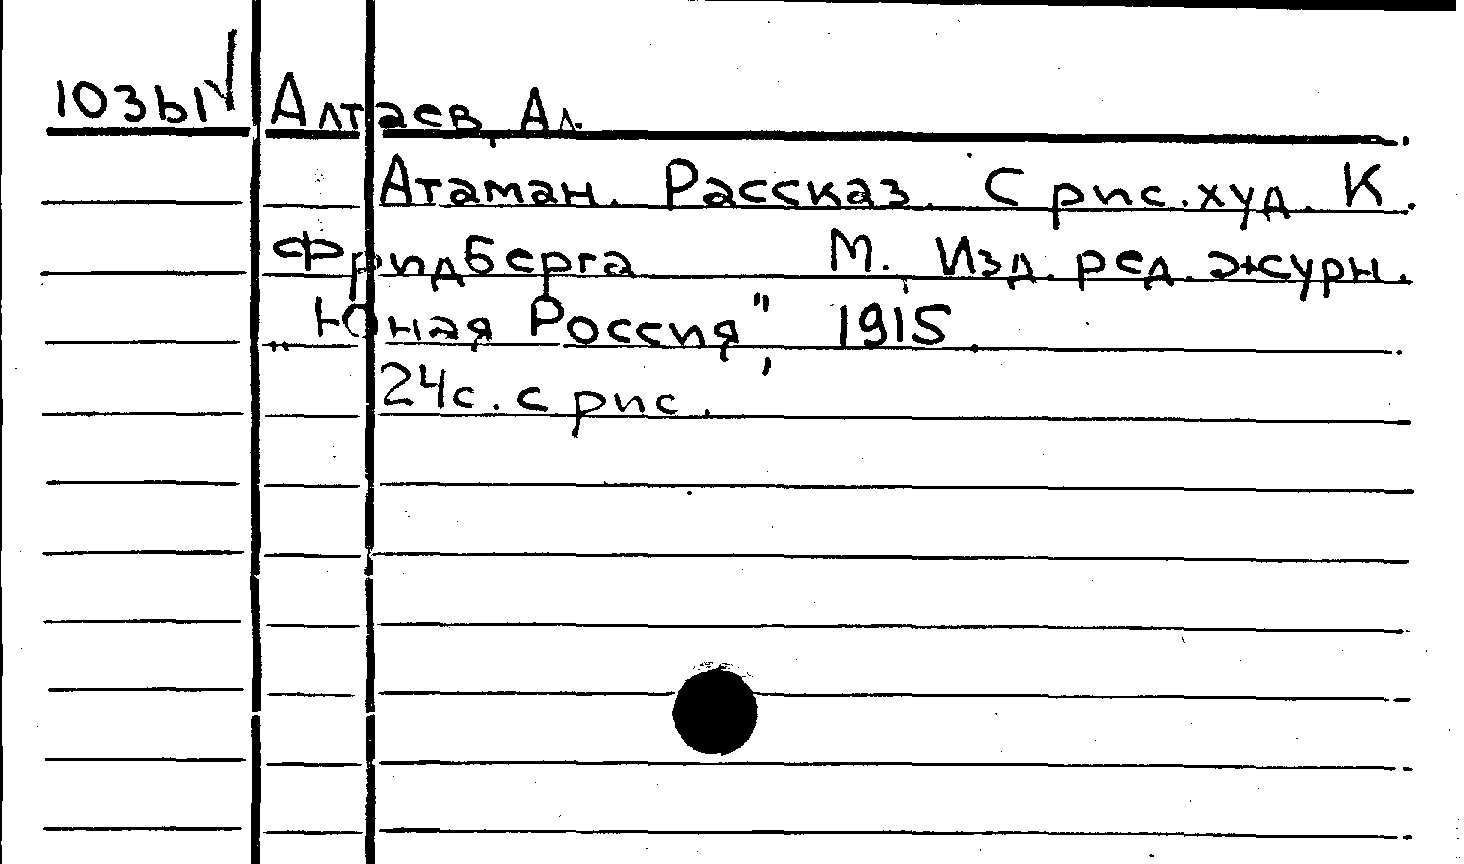 103Ы√ Алтаев, Ал.
Атаман. Рассказ. С рис. худ. К.
Фридберга М. Изд. ред. журн.
„Юная Россия", 1915.
24с. с рис.